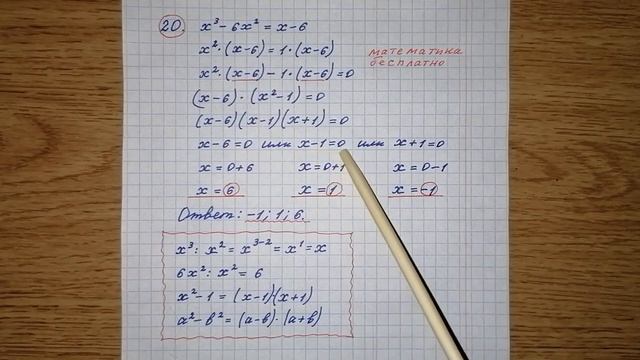 20. x³ - 6x² = x - 6
x²·(x-6) = 1·(x-6)
математика
бесплатно
x²·(x-6) - 1·(x-6) = 0
(x-6)·(x²-1) = 0
(x-6)(x-1)(x+1) = 0
x-6=0 или x-1=0 или x+1=0
x = 0+6 x = 0+1 x = 0-1
x = 6 x = 1 x = -1
Ответ: -1; 1; 6.
x³ : x² = x³⁻² = x¹ = x
6x² : x² = 6
x² - 1 = (x-1)(x+1)
a² - b² = (a-b)·(a+b)